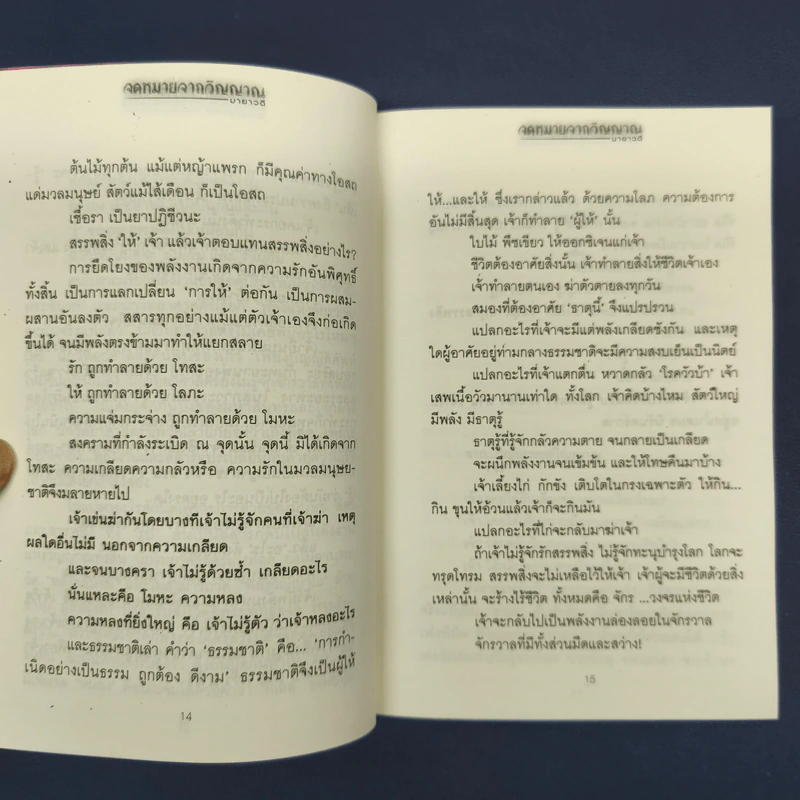 จดหมายจากวิญญาณ
มายาวตี
ต้นไม้ทุกต้น แม้แต่หญ้าแพรก ก็มีคุณค่าทางโอสถ
แด่มวลมนุษย์ สัตว์แม้ไส้เดือน ก็เป็นโอสถ
เชื้อรา เป็นยาปฏิชีวนะ
สรรพสิ่ง ‘ให้’ เจ้า แล้วเจ้าตอบแทนสรรพสิ่งอย่างไร?
การยึดโยงของพลังงานเกิดจากความรักอันพิศุทธิ์
ทั้งสิ้น เป็นการแลกเปลี่ยน ‘การให้’ ต่อกัน เป็นการผสม-
ผสานอันลงตัว สสารทุกอย่างแม้แต่ตัวเจ้าเองจึงก่อเกิด
ขึ้นได้ จนมีพลังตรงข้ามมาทำให้แยกสลาย
รัก ถูกทำลายด้วย โทสะ
ให้ ถูกทำลายด้วย โลภะ
ความแจ่มกระจ่าง ถูกทำลายด้วย โมหะ
สงครามที่กำลังระเบิด ณ จุดนั้น จุดนี้ มิได้เกิดจาก
โทสะ ความเกลียดความกลัวหรือ ความรักในมวลมนุษย-
ชาติจึงมลายหายไป
เจ้าเข่นฆ่ากันโดยบางทีเจ้าไม่รู้จักคนที่เจ้าฆ่า เหตุ
ผลใดอื่นไม่มี นอกจากความเกลียด
และจนบางครา เจ้าไม่รู้ด้วยซ้ำ เกลียดอะไร
นั่นแหละคือ โมหะ ความหลง
ความหลงที่ยิ่งใหญ่ คือ เจ้าไม่รู้ตัว ว่าเจ้าหลงอะไร
และธรรมชาติเล่า คำว่า ‘ธรรมชาติ’ คือ... ‘การกำ-
เนิดอย่างเป็นธรรม ถูกต้อง ดีงาม’ ธรรมชาติจึงเป็นผู้ให้
14
จดหมายจากวิญญาณ
มายาวตี
ให้...และให้ ซึ่งเรากล่าวแล้ว ด้วยความโลภ ความต้องการ
อันไม่มีสิ้นสุด เจ้าก็ทำลาย ‘ผู้ให้’ นั้น
ใบไม้ พืชเขียว ให้ออกซิเจนแก่เจ้า
ชีวิตต้องอาศัยสิ่งนั้น เจ้าทำลายสิ่งให้ชีวิตเจ้าเอง
เจ้าทำลายตนเอง ฆ่าตัวตายลงทุกวัน
สมองที่ต้องอาศัย ‘ธาตุนี้’ จึงแปรปรวน
แปลกอะไรที่เจ้าจะมีแต่พลังเกลียดชังกัน และเหตุ
ใดผู้อาศัยอยู่ท่ามกลางธรรมชาติจะมีความสงบเย็นเป็นนิตย์
แปลกอะไรที่เจ้าแตกตื่น หวาดกลัว ‘โรควัวบ้า’ เจ้า
เสพเนื้อวัวมานานเท่าใด ทั้งโลก เจ้าคิดบ้างไหม สัตว์ใหญ่
มีพลัง มีธาตุรู้
ธาตุรู้ที่รู้จักกลัวความตาย จนกลายเป็นเกลียด
จะผนึกพลังงานจนเข้มข้น และให้โทษคืนมาบ้าง
เจ้าเลี้ยงไก่ กักขัง เติบโตในกรงเฉพาะตัว ให้กิน...
กิน ขุนให้อ้วนแล้วเจ้าก็จะกินมัน
แปลกอะไรที่ไก่จะกลับมาฆ่าเจ้า
ถ้าเจ้าไม่รู้จักรักสรรพสิ่ง ไม่รู้จักทะนุบำรุงโลก โลกจะ
ทรุดโทรม สรรพสิ่งจะไม่เหลือไว้ให้เจ้า เจ้าผู้จะมีชีวิตด้วยสิ่ง
เหล่านั้น จะร้างไร้ชีวิต ทั้งหมดคือ จักร ...วงจรแห่งชีวิต
เจ้าจะกลับไปเป็นพลังงานล่องลอยในจักรวาล
จักรวาลที่มีทั้งส่วนมืดและสว่าง!
15